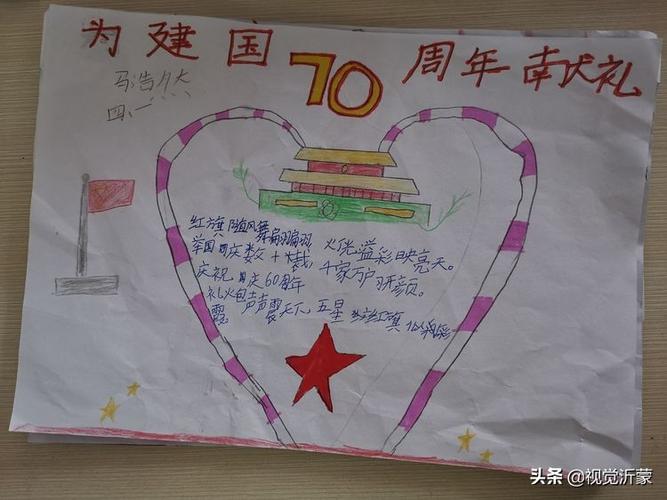 为建国70周年献礼
马浩然
四、一
红旗随风舞翩翩,火优溢彩映亮天。
举国同庆数十载,千家万户讶颜。
庆祝国庆60周年
礼火包声声震天下,五星红旗
霞
头条 @视觉沂蒙